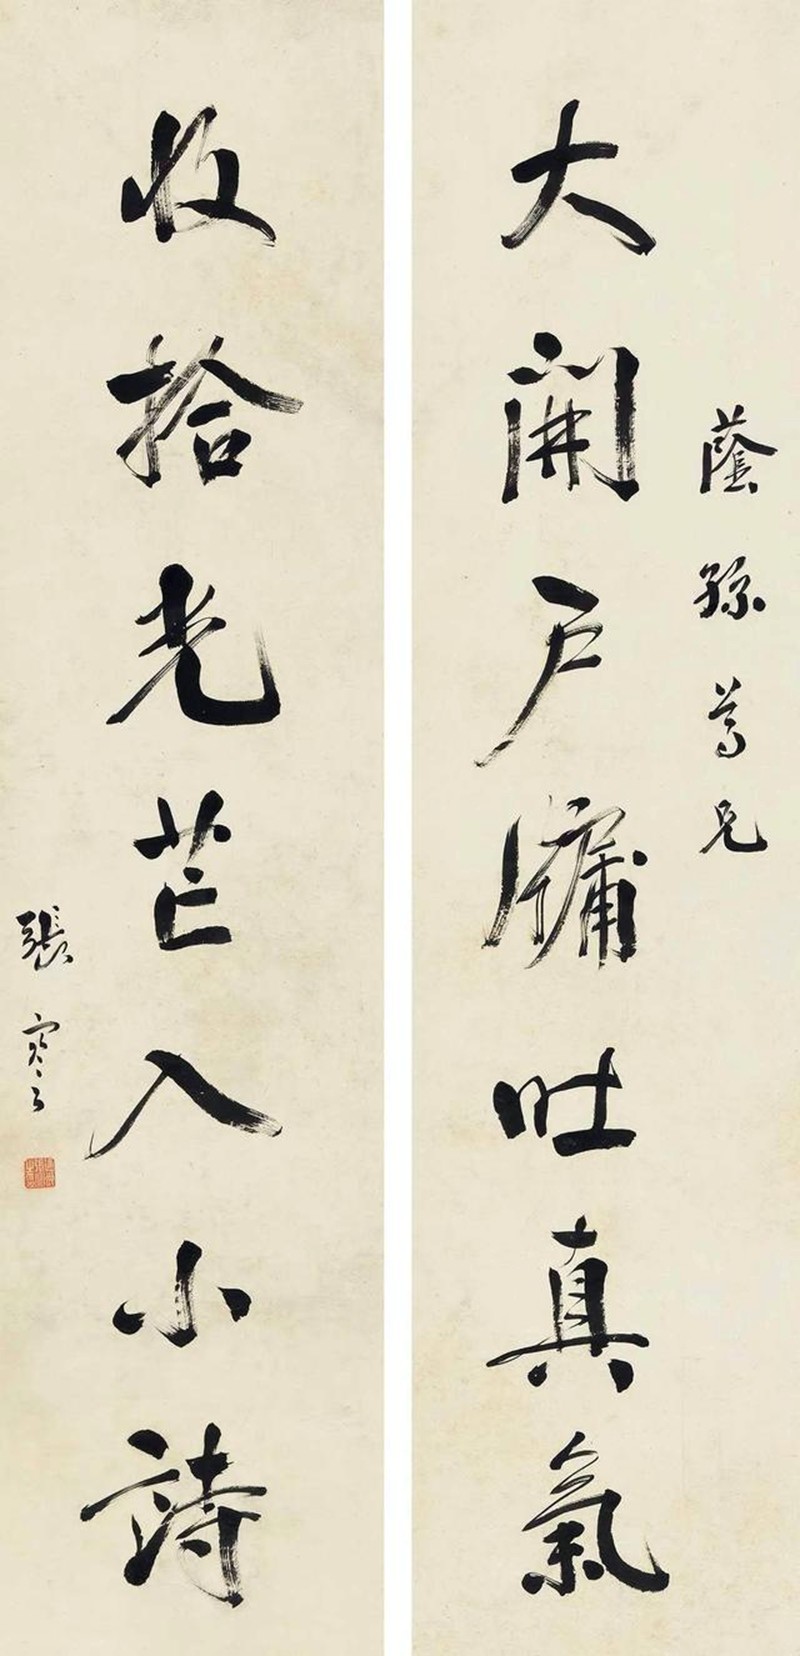 蔭孫尊兄
大開戶牖吐真氣
收拾光芒入小詩
張謇